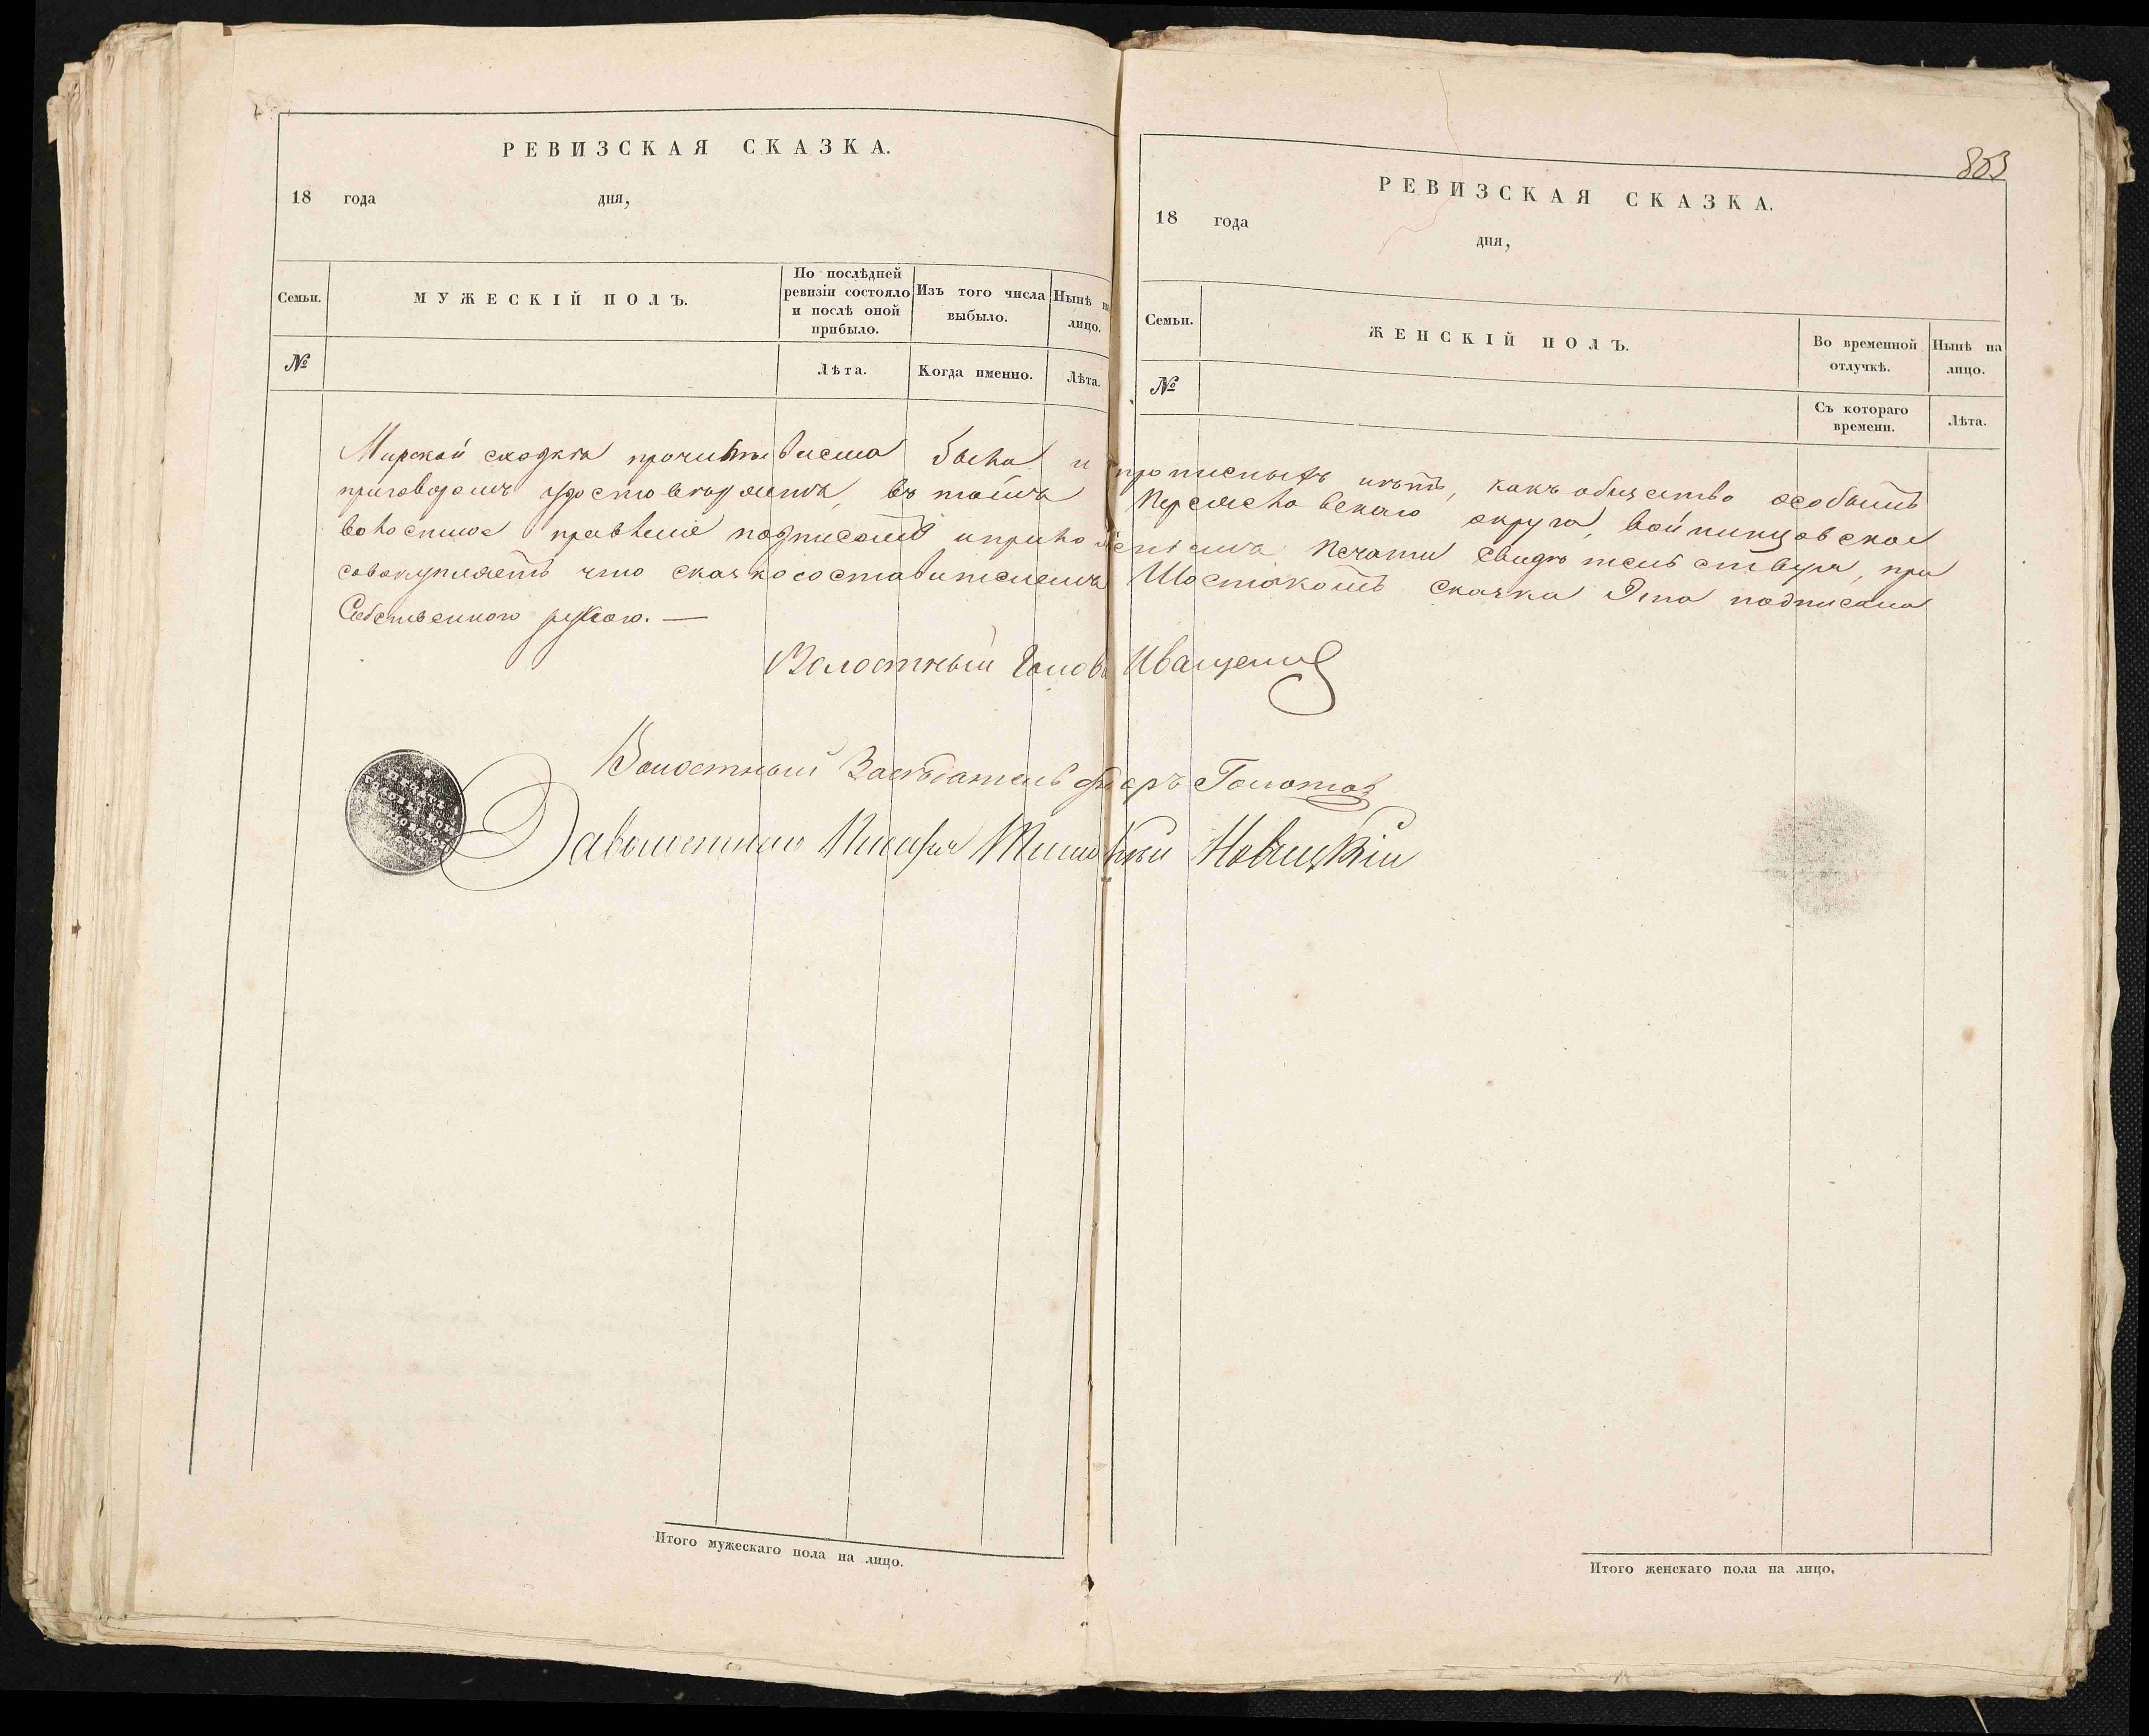 РЕВИЗСКАЯ СКАЗКА.
18 года дня,
Семьи.
МУЖЕСКІЙ ПОЛЪ.
По послѣдней ревизіи состояло и послѣ оной прибыло.
Изъ того числа выбыло.
Нынѣ на лицо.
№
Лѣта.
Когда именно.
Лѣта.
803
РЕВИЗСКАЯ СКАЗКА.
18 года дня,
Семьи.
ЖЕНСКІЙ ПОЛЪ.
Во временной отлучкѣ.
Нынѣ на лицо.
№
Съ котораго времени.
Лѣта.
Мирской сходкѣ прочитываема была и прописныхъ нѣтъ, какъ общество особымъ
приговоромъ удостовѣряетъ, въ томъ Переяславскаго округа, Войтинцовское
волостное правленіе подписомъ и приложеніемъ печати свидѣтельствуя, при
совокупляетъ что сказкосоставителемъ Шостакомъ сказка Эта подписана
Собственною рукою. —
Волостный Голова Иващенко
Волостный Засѣдатель
Новицкій
Итого мужескаго пола на лицо.
Итого женскаго пола на лицо.